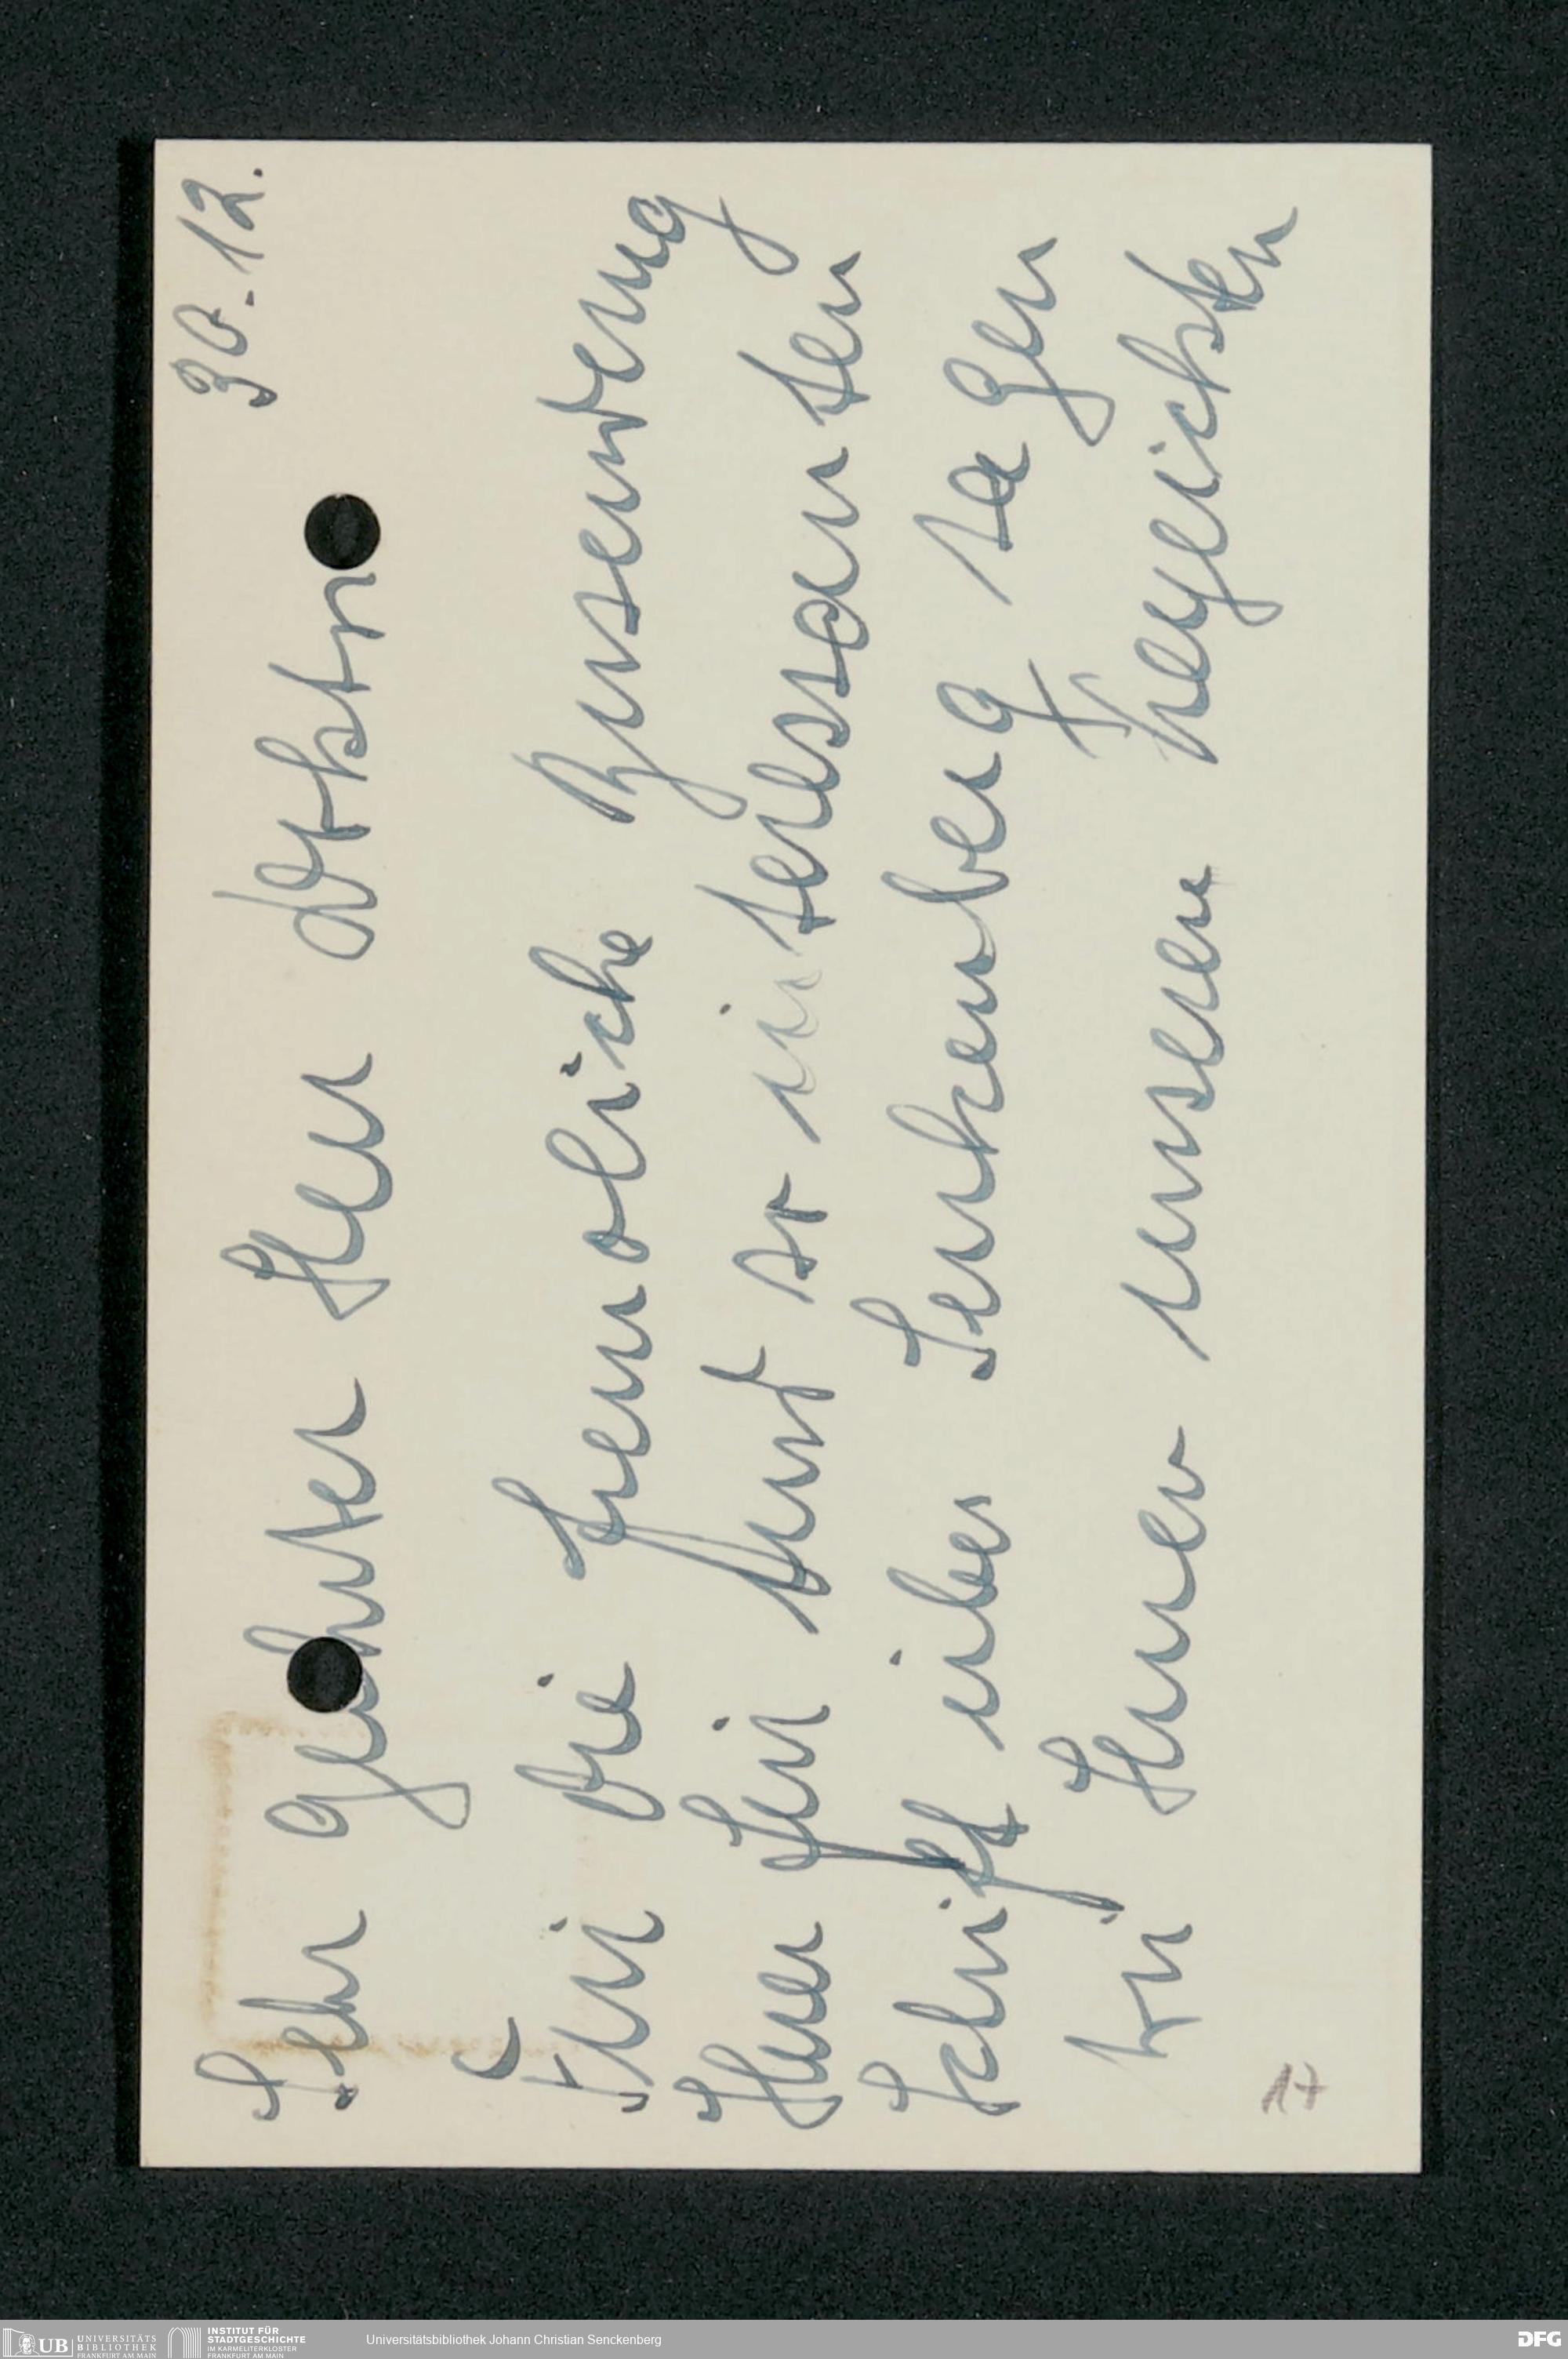 30.12.
Sehr geehrter Herr Doktor
Für die freundliche Zusendung
Ihrer fein und so interessanten
Schrift über Senkenberg sagen
wir Ihnen unseren herzlichsten
17
UB UNIVERSITÄTS
BIBLIOTHEK
FRANKFURT AM MAIN
INSTITUT FÜR
STADTGESCHICHTE
IM KARMELITERKLOSTER
FRANKFURT AM MAIN
Universitätsbibliothek Johann Christian Senckenberg
DFG